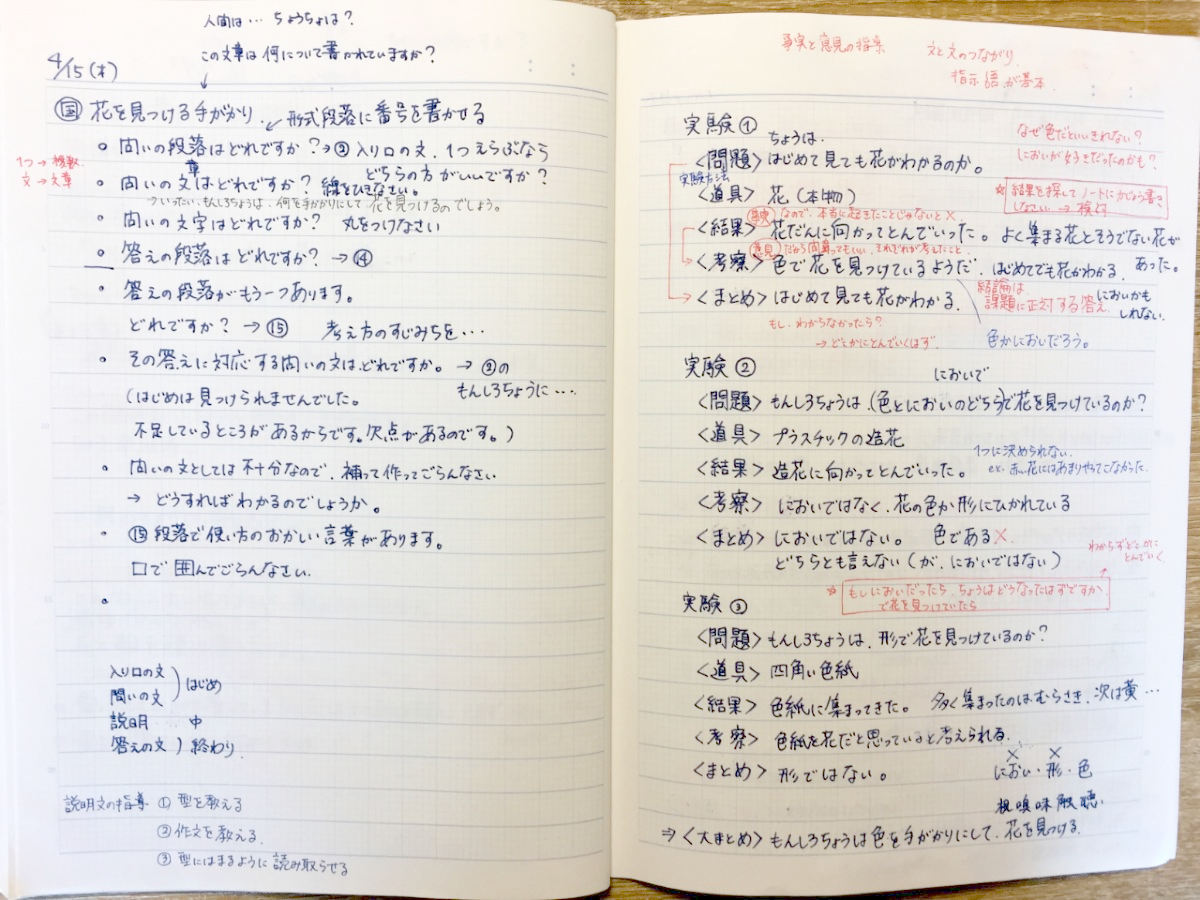 人間は… ちょうちょは?
この文章は何について書かれていますか?
4/15(木)
国 花を見つける手がかり 形式段落に番号を書かせる
。問いの段落はどれですか?→② 入り口の文、1つえらぶなら
どちらの方がいいですか?
1つ→複数
文→文章
。問いの文章はどれですか? 線をひきなさい。
→いったい、もんしろちょうは、何を手がかりにして花を見つけるのでしょう。
。問いの文字はどれですか? 丸をつけなさい
。答えの段落はどれですか?→⑭
。答えの段落がもう一つあります。
どれですか?→⑮ 考え方のすじみちを…
。その答えに対応する問いの文はどれですか。→②の
もんしろちょうに…
(はじめは見つけられませんでした。
不足しているところがあるからです。欠点があるのです。)
・問いの文としては不十分なので、補って作ってごらんなさい
→ どうすればわかるのでしょうか。
・⑮段落で使い方のおかしい言葉があります。
□で囲んでごらんなさい.
・
入り口の文
問いの文 )はじめ
説明 中
答えの文)終わり
説明文の指導 ①型を教える
②作文を教える
③型にはまるように読み取らせる
事実と意見の指導 文と文のつながり
指示語が基本
実験①
ちょうは、
<問題>はじめて見ても花がわかるのか。
なぜ色だといいきれない?
においが好きだったのかも?
実験方法
<道具>花(本物)
☆結果を探してノートにかじょう書きしなさい→検討
事実 なので、本当に起きたことじゃないと×
<結果>花だんに向かってとんでいった。よく集まる花とそうでない花が
あった。
意見 だから間違ってもいい、それぞれが考えたこと
<考察>色で花を見つけているようだ、はじめてでも花がわかる、
においかも
しれない
<まとめ>はじめて見ても花がわかる。
結論は、
課題に正対する答え
もし、わからなかったら?
→どこかにとんでいくはず
色かにおいだろう。
実験②
においで
<問題>もんしろちょうは、(色とにおいのどちら)で花を見つけているのか?
<道具>プラスチックの造花
<結果>造花に向かってとんでいった。
1つに決められない
ex. 赤い花にはあまりやってこなかった
<考察>においではなく、花の色か形にひかれている
<まとめ>においではない。 色である×
どちらとも言えない(が、においではない)
わからずどこかに
とんでいく
☆もしにおいだったら、ちょうはどうなったはずですか
で花を見つけていたら
実験③
<問題>もんしろちょうは、形で花を見つけているのか?
<道具>四角い色紙
<結果>色紙に集まってきた。 多く集まったのはむらさき、次は黄…
<考察>色紙を花だと思っていると考えられる。
<まとめ>形ではない。
× ×
におい・形・色
視嗅味触聴
⇒<大まとめ>もんしろちょうは色を手がかりにして、花を見つける。